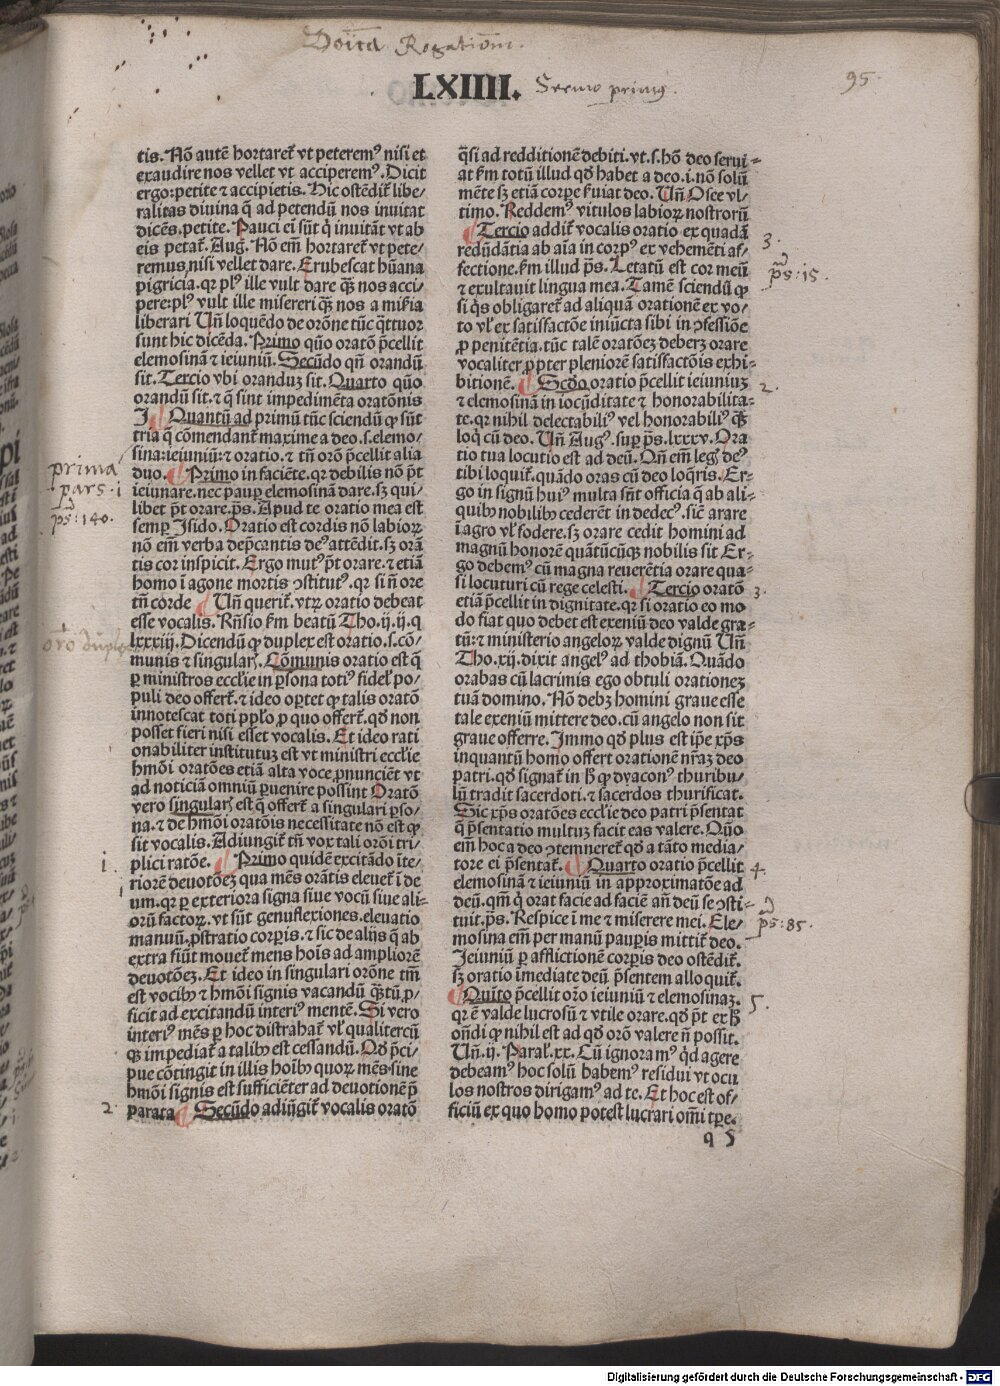 Doĩca Rogationũ.
LXIIII. Sermo primꝰ.
95
tis. Nõ autẽ hortaret̃ vt peteremꝰ nisi et
exaudire nos vellet vt acciperemꝰ. Dicit
ergo: petite ⁊ accipietis. Hic ostẽdit̃ libe/
ralitas diuina q̃ ad petendũ nos inuitat
dicẽs. petite. Pauci ei sũt q̃ inuitãt vt ab
eis petat̃. Aug. Nõ em̃ hortaret̃ vt pete/
remus, nisi vellet dare. Erubescat hũana
pigricia. qꝛ plꝰ ille vult dare q̃ꝫ nos acci/
pere: plꝰ vult ille misereri q̃ꝫ nos a mis̃ia
liberari Uñ loquẽdo de orõne tũc q̃ttuor
sunt hic dicẽda. Primo quõ oratõ p̃cellit
elemosinã ⁊ ieiuniũ. Secũdo qñ orandũ
sit. Tercio vbi oranduꝫ sit. Quarto quõ
orandũ sit. ⁊ q̃ sint impedimẽta oratõnis
I Quantũ ad primũ tũc sciendũ ꝙ sũt
tria q̃ cõmendant̃ maxime a deo. s. elemo/
sina: ieiuniũ: ⁊ oratio. ⁊ tñ orõ p̃cellit alia
duo. Primo in faciẽte. qꝛ debilis nõ p̃t
ieiunare. nec paup̃ elemosinã dare. sꝫ qui/
libet p̃t orare. p̃s. Apud te oratio mea est
semꝑ Isido. Oratio est cordis nõ labioꝝ
nõ em̃ verba dep̃cantis deꝰ attẽdit. sꝫ orã
tis cor inspicit. Ergo mutꝰ p̃t orare. ⁊ etiã
homo ĩ agone mortis ꝯstitutꝰ. qꝛ si ñ ore
tñ corde Uñ querit̃. vtrꝝ oratio debeat
esse vocalis. Rñsio s̃m beatũ Tho. ij. ij. q
lxxxiij. Dicendũ ꝙ duplex est oratio. s. cõ/
munis ⁊ singular̃. Cõmunis oratio est q̃
ꝑ ministros ecclie in ꝑsona totiꝰ fidel̃ po/
puli deo offert̃. ⁊ ideo oꝑtet ꝙ talis oratõ
innotescat toti pp̃lo ꝓ quo offert̃. qd̃ non
posset fieri nisi esset vocalis. Et ideo rati
onabiliter institutuꝫ est vt ministri ecclie
hmõi oratões etiã alta voce ꝓnunciẽt vt
ad noticiã omniũ ꝑuenire possint Oratõ
vero singular̃ est q̃ offert̃ a singulari ꝑso/
na. ⁊ de hmõi oratõis necessitate nõ est ꝙ
sit vocalis. Adiungit̃ tñ vox tali orõi tri/
plici ratõe. Primo quidẽ excitãdo ĩte/
riorẽ deuotõeꝫ qua mẽs orãtis eleuet̃ ĩ de
um. qꝛ ꝑ exteriora signa siue vocũ siue ali=
orũ factoꝝ. vt sũt genuflexiones. eleuatio
manuũ, ꝓstratio corꝑis. ⁊ sic de alijs q̃ ab
extra fiũt mouet̃ mens hoĩs ad ampliorẽ
deuotõeꝫ. Et ideo in singulari orõne tm̃
est vocibꝰ ⁊ hmõi signis vacandũ q̃ꝫtũ ꝓ/
ficit ad excitandũ interiꝰ mentẽ. Si vero
interiꝰ mẽs ꝑ hoc distrahat̃ vl̃ qualitercũ
qꝫ impediat̃ a talibꝰ est cessandũ. Qd̃ p̃ci/
pue cõtingit in illis hoĩbꝰ quoꝝ mẽs sine
hmõi signis est sufficiẽter ad deuotionẽ p̃
parata Secũdo adiũgit̃ vocalis oratõ
q̃si ad redditionẽ debiti. vt. s. hõ deo serui=
at s̃m totũ illud qd̃ habet a deo. i. nõ solũ
mẽte sꝫ etiã corꝑe s̃uiat deo. Uñ Osee vl/
timo. Reddemꝰ vitulos labioꝝ nostrorũ
Tercio addit̃ vocalis oratio ex quadã
redũdãtia ab aĩa in corpꝰ ex vehemẽti af/
fectione. s̃m illud p̃s. Letatũ est cor meũ
⁊ exultauit lingua mea. Tamẽ sciendũ ꝙ
si q̃s obligaret̃ ad aliquã orationẽ ex vo/
to vl̃ ex satisfactõe iniũcta sibi in ꝯfessiõe
ꝓ penitẽtia. tũc talẽ oratõeꝫ deberꝫ orare
vocaliter ꝓpter pleniorẽ satisfactõis exhi=
bitionẽ. Scd̃o oratio p̃cellit ieiuniuꝫ
⁊ elemosinã in iocũditate ⁊ honorabilita=
te. qꝛ nihil delectabiliꝰ vel honorabiliꝰ q̃ꝫ
loq̃ cũ deo. Uñ Augꝰ. suꝑ p̃s. lxxxv. Ora
tio tua locutio est ad deũ. Qñ em̃ legꝫ deꝰ
tibi loquit̃. quãdo oras cũ deo loq̃ris. Er=
go in signũ huiꝰ multa sũt officia q̃ ab ali/
quibꝰ nobilibꝰ cederẽt in dedecꝰ. sic̃ arare
ĩ agro vl̃ fodere. sꝫ orare cedit homini ad
magnũ honorẽ quãtũcũqꝫ nobilis sit Er=
go debemꝰ cũ magna reuerẽtia orare qua=
si locuturi cũ rege celesti. Tercio oratõ
etiã p̃cellit in dignitate. qꝛ si oratio eo mo
do fiat quo debet est exeniũ deo valde gra=
tũ: ⁊ ministerio angeloꝝ valde dignũ Uñ
Tho. xij. dixit angelꝰ ad thobiã. Quãdo
orabas cũ lacrimis ego obtuli orationeꝫ
tuã domino. Nõ debꝫ homini graue esse
tale exeniũ mittere deo. cũ angelo non sit
graue offerre. Immo qd̃ plus est ip̃e xp̃s
inquantũ homo offert orationẽ nr̃aꝫ deo
patri. qd̃ signat̃ in h̃ ꝙ dyaconꝰ thuribu/
lũ tradit sacerdoti. ⁊ sacerdos thurificat.
Sic xp̃s oratões ecclie deo patri p̃sentat
q̃ p̃sentatio multuꝫ facit eas valere. Quõ
em̃ hoc a deo ꝯtemneret̃ qd̃ a tãto media/
tore ei p̃sentat̃. Quarto oratio p̃cellit
elemosinã ⁊ ieiuniũ in approximatõe ad
deũ. qꝛ q̃ orat facie ad faciẽ añ deũ se ꝯsti=
tuit. p̃s. Respice ĩ me ⁊ miserere mei. Ele/
mosina em̃ per manũ pauꝑis mittit̃ deo.
Ieiuniũ ꝑ afflictionẽ corꝑis deo ostẽdit̃.
sꝫ oratio imediate deũ p̃sentem alloquit̃.
Quĩto p̃cellit orõ ieiuniũ ⁊ elemosinaꝫ.
qꝛ ẽ valde lucrosũ ⁊ vtile orare. qd̃ p̃t ex h̃
oñdi ꝙ nihil est ad qd̃ orõ valere ñ possit.
Uñ. ij. Paral̃. xx. Cũ ignoramꝰ q̃d agere
debeamꝰ hoc solũ habemꝰ residui vt ocu
los nostros dirigamꝰ ad te. Et hoc est of/
ficiũ ex quo homo potest lucrari om̃i tp̃e.
q 5
prima
pars. i
ps: 140.
orõ duplex
1.
2.
3.
ps: 15.
2.
3.
4.
ps: 85.
5.
Digitalisierung gefördert durch die Deutsche Forschungsgemeinschaft - DFG